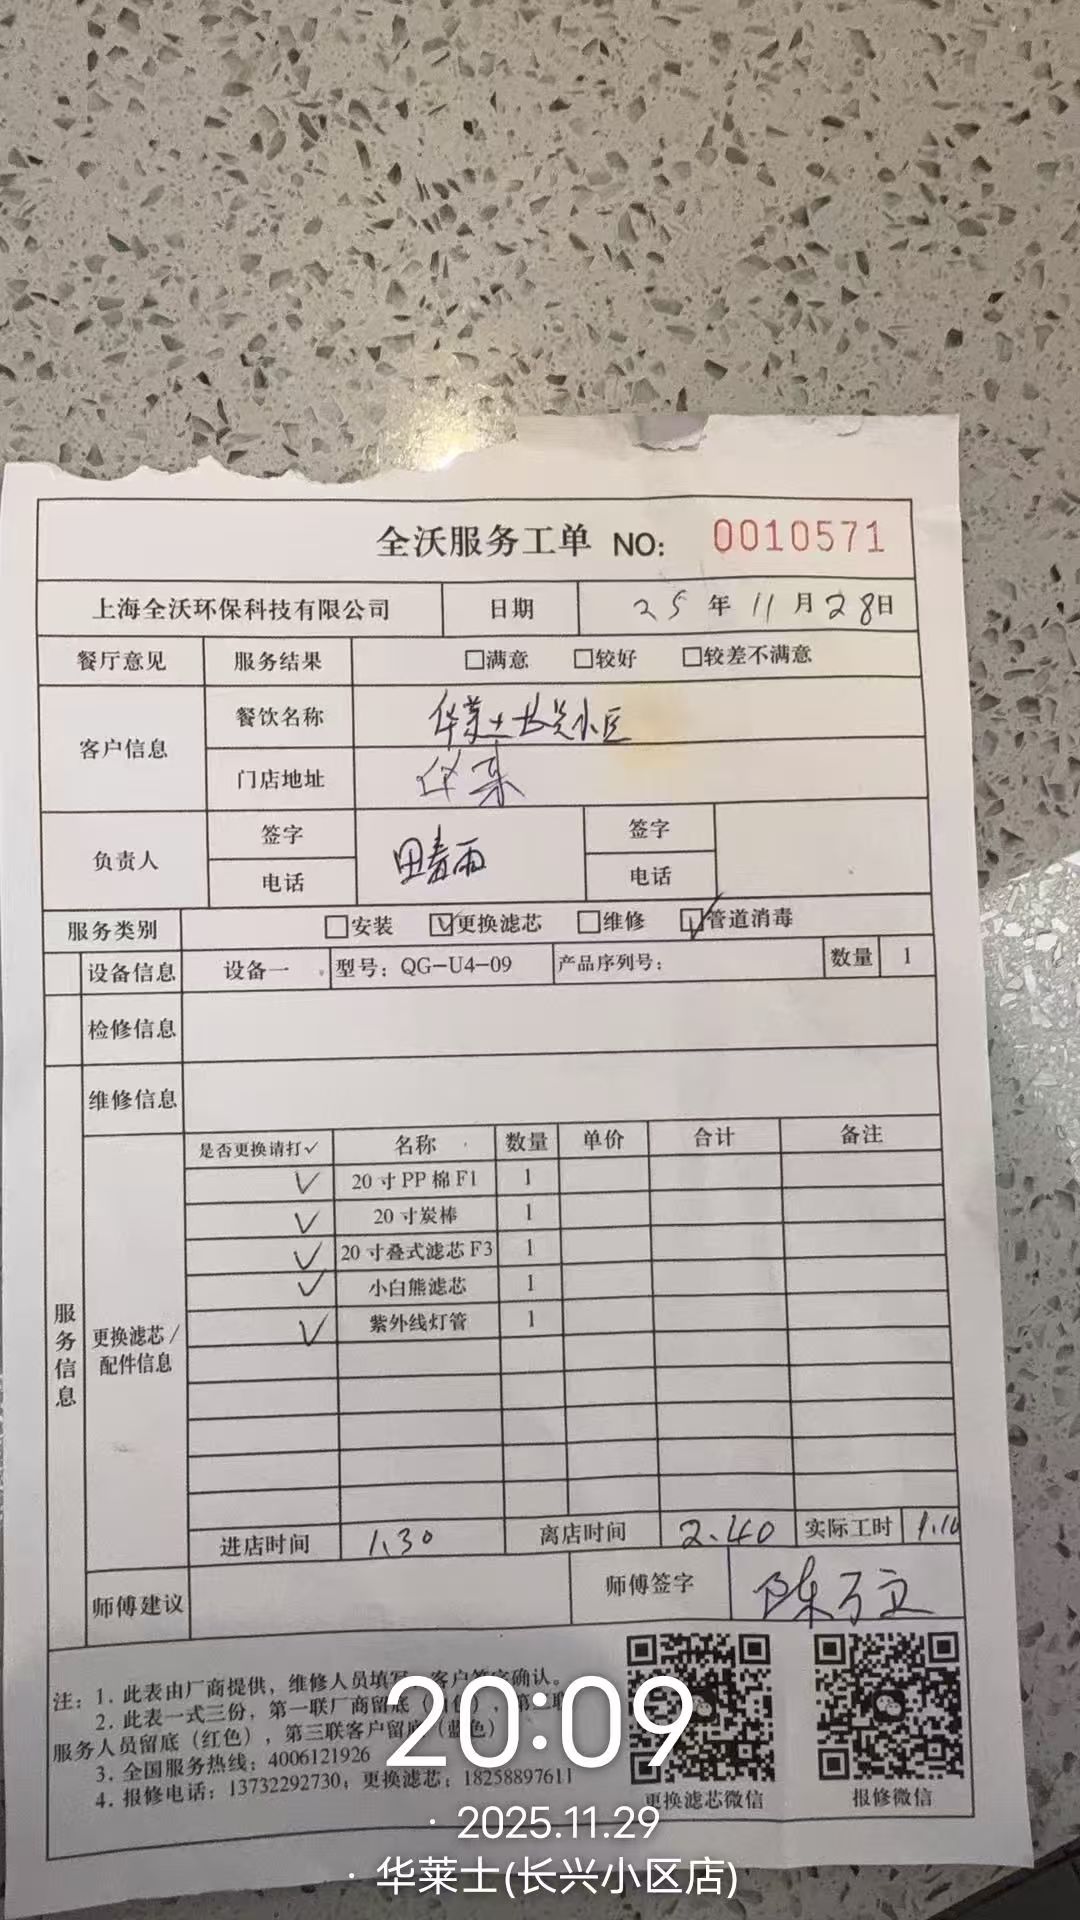 全沃服务工单 NO: 0010571
上海全沃环保科技有限公司 日期 25年11月28日
餐厅意见 服务结果 □满意 □较好 □较差不满意
客户信息 餐饮名称 华莱士长兴小区
门店地址 华莱
负责人 签字 电话 田春雨 签字 电话
服务类别 □安装 ☑更换滤芯 □维修 ☑管道消毒
设备信息 设备一 型号：QG-U4-09 产品序列号： 数量 1
检修信息
维修信息
服务信息
更换滤芯/配件信息
是否更换请打✓ 名称 数量 单价 合计 备注
✓ 20寸PP棉F1 1
✓ 20寸炭棒 1
✓ 20寸叠式滤芯F3 1
✓ 小白熊滤芯 1
✓ 紫外线灯管 1
进店时间 1.30 离店时间 2.40 实际工时 1.10
师傅建议 师傅签字 陈万立
注：1. 此表由厂商提供，维修人员填写，客户签字确认。
2. 此表一式三份，第一联厂商留底（色），第二联
服务人员留底（红色），第三联客户留底（蓝色）
3. 全国服务热线：4006121926
4. 报修电话：13732292730；更换滤芯：18258897611
更换滤芯微信 报修微信
20:09
· 2025.11.29
· 华莱士(长兴小区店)